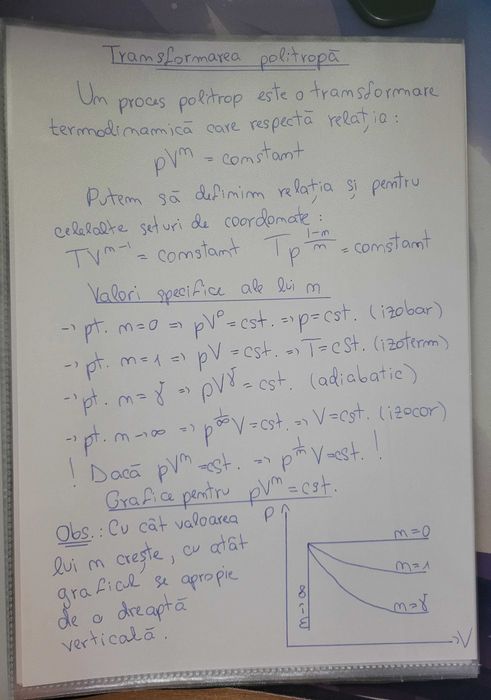 Transformarea politropă
Un proces politrop este o transformare
termodinamică care respectă relația:
pVⁿ = constant
Putem să definim relația și pentru
celelalte seturi de coordonate:
TVⁿ⁻¹ = constant  Tp^((1-n)/n) = constant
Valori specifice ale lui n
→ pt. n=0 => pV⁰=cst. => p=cst. (izobar)
→ pt. n=1 => pV=cst. => T=cst. (izoterm)
→ pt. n=γ => pV^γ=cst. (adiabatic)
→ pt. n→∞ => p^(1/∞)V=cst. => V=cst. (izocor)
! Dacă pVⁿ=cst. => p^(1/n)V=cst. !
Grafice pentru pVⁿ=cst.
Obs.: Cu cât valoarea
lui n crește, cu atât
graficul se apropie
de o dreaptă
verticală.
p
n=0
n=1
n=γ
n=∞
V